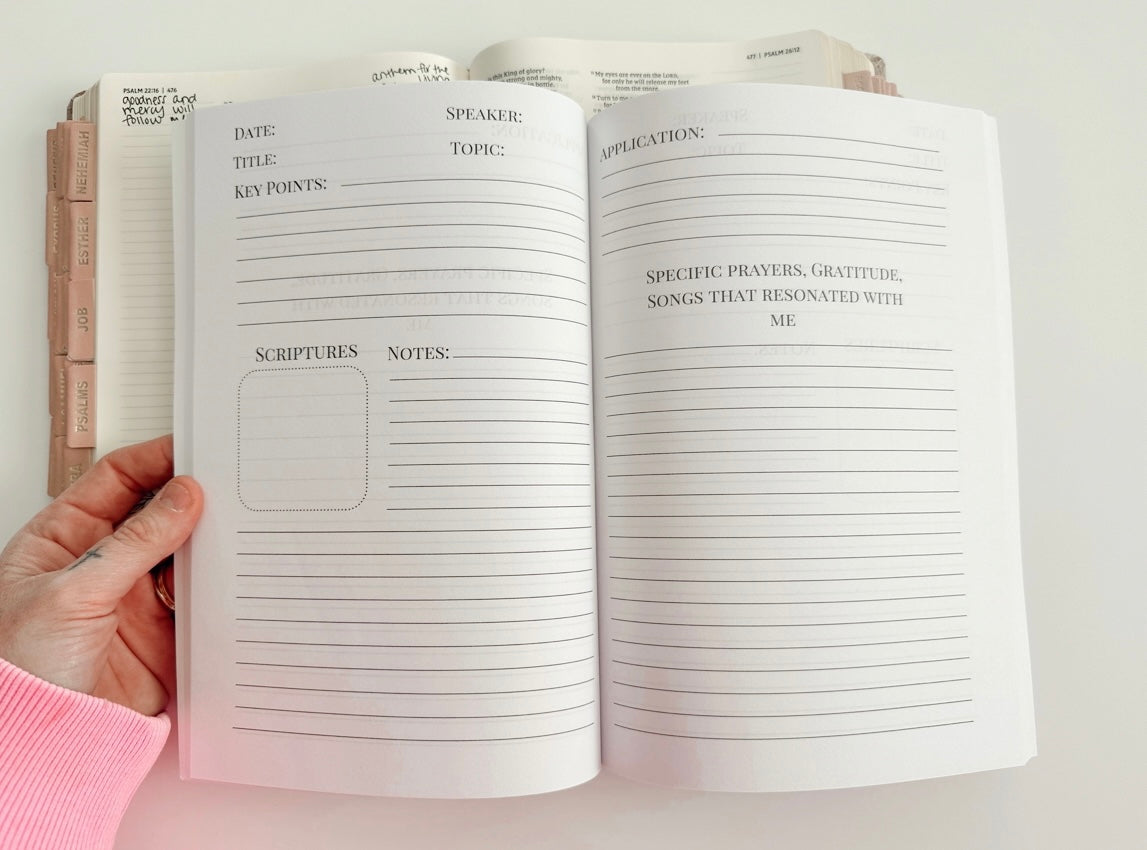 PSALM 22:16 | 476
goodness and
mercy will
follow
anthem for the
living
477 | PSALM 26:12
this King of glory?
strong and mighty,
in battle.
My eyes are ever on the LORD,
for only he will release my feet
from the snare.
Turn to me
NEHEMIAH
ESTHER
JOB
PSALMS
DATE:
SPEAKER:
TITLE:
TOPIC:
KEY POINTS:
SCRIPTURES
NOTES:
APPLICATION:
SPECIFIC PRAYERS, GRATITUDE,
SONGS THAT RESONATED WITH
ME